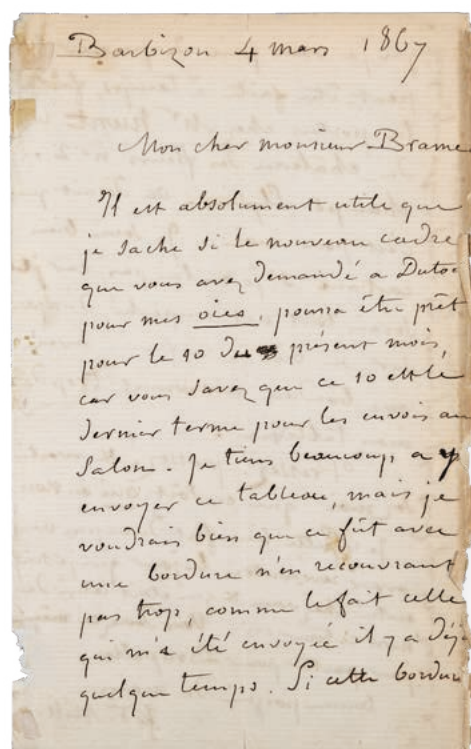 Barbizon 4 mars 1867
Mon cher monsieur Brame
Il est absolument utile que
je sache si le nouveau cadre
que vous avez demandé a
pour mes oies, pourra être prêt
pour le 10 du présent mois,
car vous savez que ce 10 est le
dernier terme pour les envois au
Salon. Je tiens beaucoup a y
envoyer ce tableau, mais je
voudrais bien que ce fût avec
une bordure n'en recouvrant
pas trop, comme le fait celle
qui m'a été envoyée il y a déjà
quelque temps. Si cette bordure